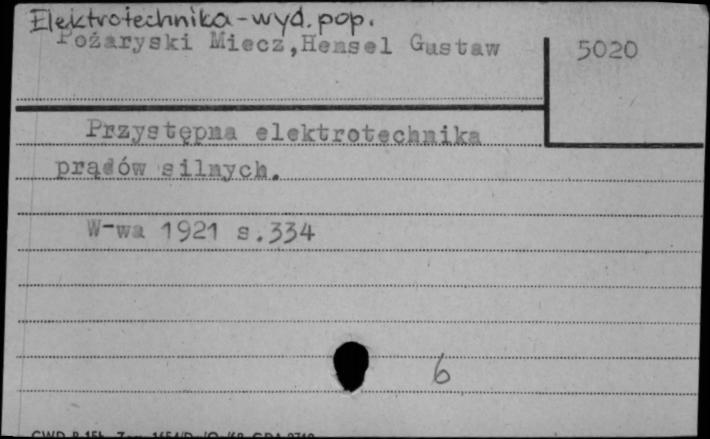 Elektrotechnika-wyd. pop.
Pożaryski Miecz,Hensel Gustaw
5020
Przystępna elektrotechnika
prądów silnych.
W-wa 1921 s.334
6